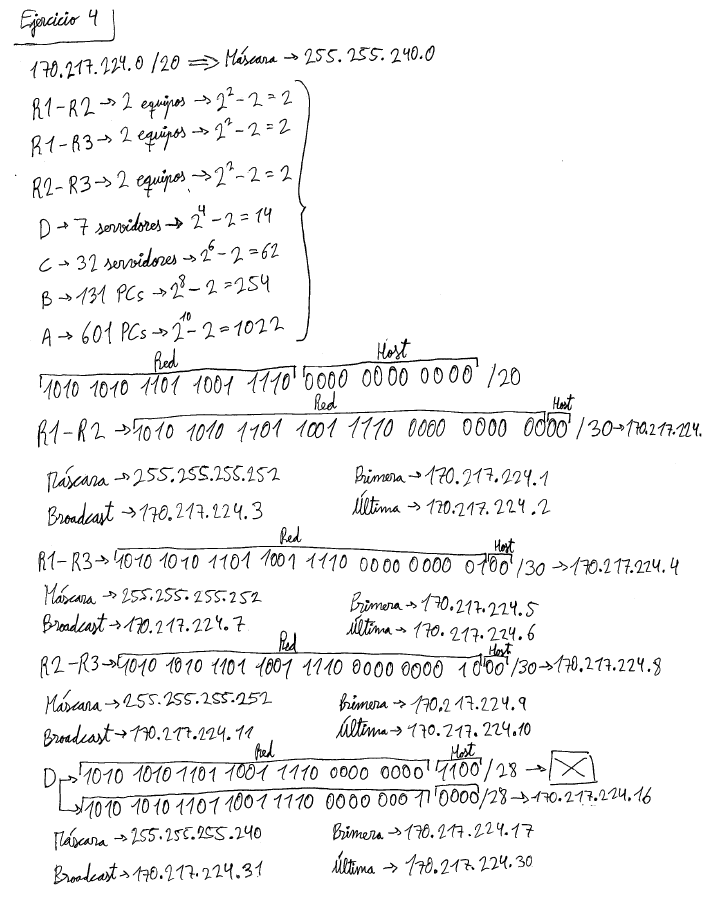 Ejercicio 4
170.217.224.0 /20 ⟹ Máscara → 255.255.240.0
R1-R2 → 2 equipos → 2² - 2 = 2
R1-R3 → 2 equipos → 2² - 2 = 2
R2-R3 → 2 equipos → 2² - 2 = 2
D → 7 servidores → 2⁴ - 2 = 14
C → 32 servidores → 2⁶ - 2 = 62
B → 131 PCs → 2⁸ - 2 = 254
A → 601 PCs → 2¹⁰ - 2 = 1022
Red Host
1010 1010 1101 1001 1110 0000 0000 0000 /20
Red Host
R1-R2 → 1010 1010 1101 1001 1110 0000 0000 0000 /30 → 170.217.224.
Máscara → 255.255.255.252 Primera → 170.217.224.1
Broadcast → 170.217.224.3 Última → 170.217.224.2
Red Host
R1-R3 → 1010 1010 1101 1001 1110 0000 0000 0100 /30 → 170.217.224.4
Máscara → 255.255.255.252 Primera → 170.217.224.5
Broadcast → 170.217.224.7 Última → 170.217.224.6
Red Host
R2-R3 → 1010 1010 1101 1001 1110 0000 0000 1000 /30 → 170.217.224.8
Máscara → 255.255.255.252 Primera → 170.217.224.9
Broadcast → 170.217.224.11 Última → 170.217.224.10
Red Host
D → 1010 1010 1101 1001 1110 0000 0000 1100 /28 →
→ 1010 1010 1101 1001 1110 0000 0001 0000 /28 → 170.217.224.16
Máscara → 255.255.255.240 Primera → 170.217.224.17
Broadcast → 170.217.224.31 Última → 170.217.224.30